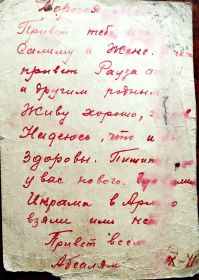 Дорогая
Привет тебе,
Салиму и Жене.
привет Рауза
и другим родным
Живу хорошо,
Надеюсь, что и
здоровы.
у вас нового.
Икрама в
взяли или не
Привет все
Абсалям